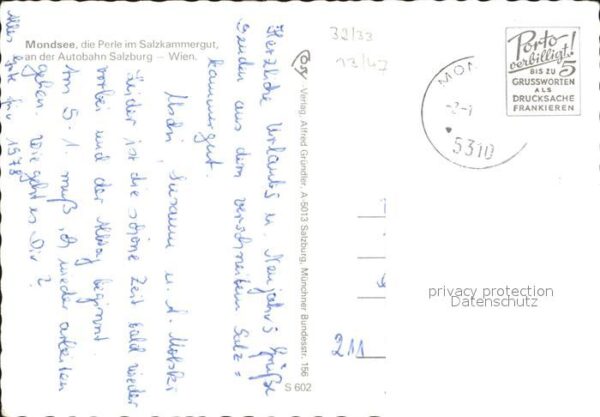 Mondsee, die Perle im Salzkammergut,
an der Autobahn Salzburg — Wien.
Herzliche Urlaubs u. Neujahrs Grüße
senden aus dem verschneiten Salz=
kammergut.
Uschi, Susann u. A.
Leider ist die schöne Zeit bald wieder
vorbei und der Alltag beginnt.
Am 5. 1. muß ich wieder arbeiten
gehen. Wie geht es Dir?
Alles Gute für 1978
Cosy -Verlag, Alfred Gründler, A-5013 Salzburg, Münchner Bundesstr. 156
S 602
32/33
13/47
MON
5310
Porto
verbilligt!
BIS ZU 5
GRUSSWORTEN
ALS
DRUCKSACHE
FRANKIEREN
211
privacy protection
Datenschutz